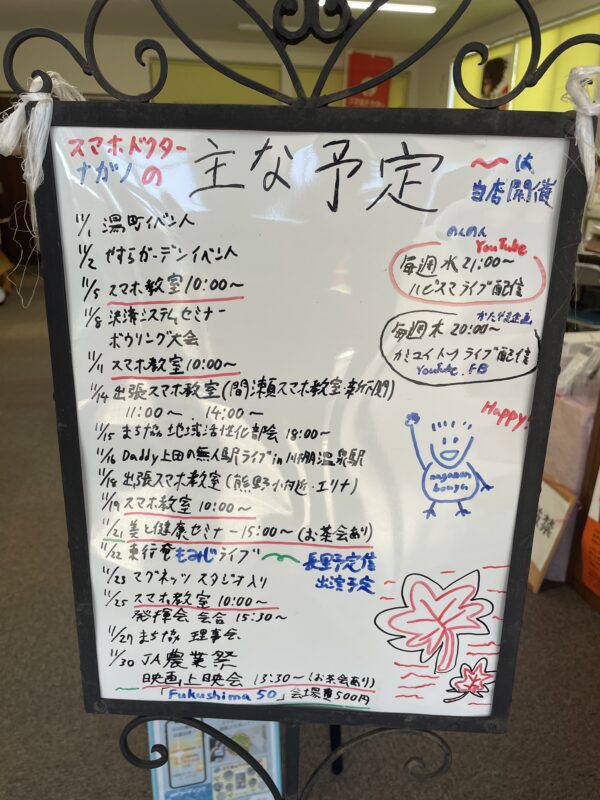 スマホドクター
ナガノの
主な予定
〜は
当店開催
11/1 湯町イベント
11/2 やすらガーデンイベント
11/5 スマホ教室 10:00〜
11/8 決済システムセミナー
ボウリング大会
11/11 スマホ教室 10:00〜
11/14 出張スマホ教室(間瀬スマホ教室・新下関)
11:00〜、14:00〜
11/15 まち協 地域活性化部会 18:00〜
11/16 Daddy上田の無人駅ライブin川棚温泉駅
11/18 出張スマホ教室(熊野小付近・エリナ)
11/19 スマホ教室 10:00〜
11/21 美と健康セミナー 15:00〜(お茶会あり)
11/22 東行庵もみじライブ 〜 長野予定信
出演予定
11/23 マグネッツ スタジオ入り
11/25 スマホ教室 10:00〜
発揮会 会合 15:30〜
11/27 まち協 理事会
11/30 JA農業祭
映画上映会 13:30〜(お茶会あり)
「Fukushima 50」会場費500円
のんのん
YouTube
毎週水 21:00〜
ハピスマライブ配信
かたぞえ企画
毎週木 20:00〜
カミユイトークライブ配信
YouTube、FB
Happy!
naganon
bouya